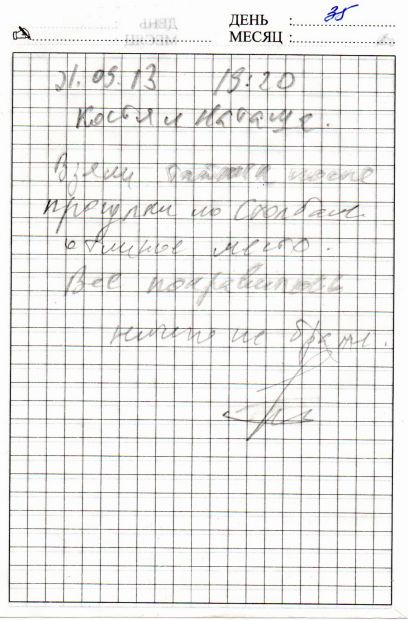 ДЕНЬ : 35
МЕСЯЦ :
21.09.13 19:20
Костя и Наташа.
Взяли тайник после
прогулки по Столбам
отличное место.
Все понравилось
ничего не брали.